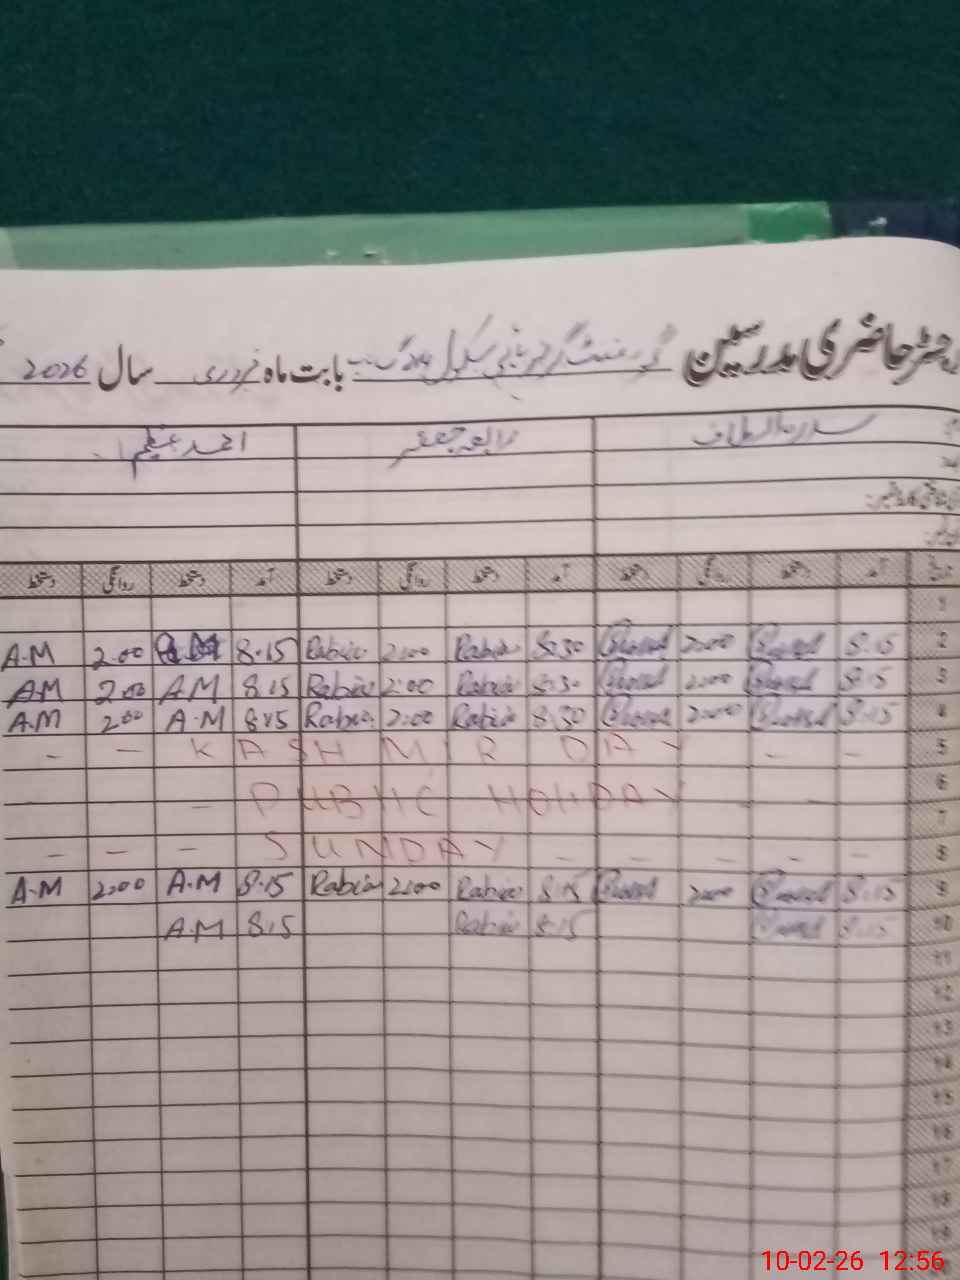 رجسٹر حاضری مدرسین گورنمنٹ گرلز ہائی سکول بابت ماہ فروری سال 2026
سدرہ الطاف رابعہ جعفر احمد عظیم
آمد دستخط روانگی دستخط آمد دستخط روانگی دستخط آمد دستخط روانگی دستخط
1
A.M 2.00 8.15 Rabia 2:00 Rabia 8:30 2:00 8:15 2
A.M 2.00 A.M 8.15 Rabia 2:00 Rabia 8:30 2:00 8:15 3
A.M 2.00 A.M 8:15 Rabia 2:00 Rabia 8:30 2:00 8:15 4
- - KASHMIR DAY - - 5
6
- PUBLIC HOLIDAY - - 7
- - - SUNDAY - - - - 8
A.M 2:00 A.M 8.15 Rabia 2:00 Rabia 8:15 2:00 8:15 9
A.M 8.15 Rabia 8:15 8:15 10
11
12
13
14
15
16
17
18
19
10-02-26 12:56